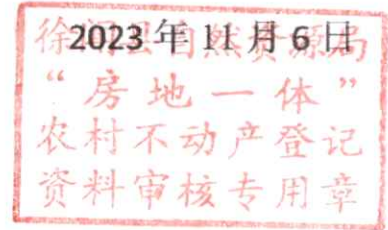 徐闻县自然资源局
2023年11月6日
“房地一体”
农村不动产登记
资料审核专用章